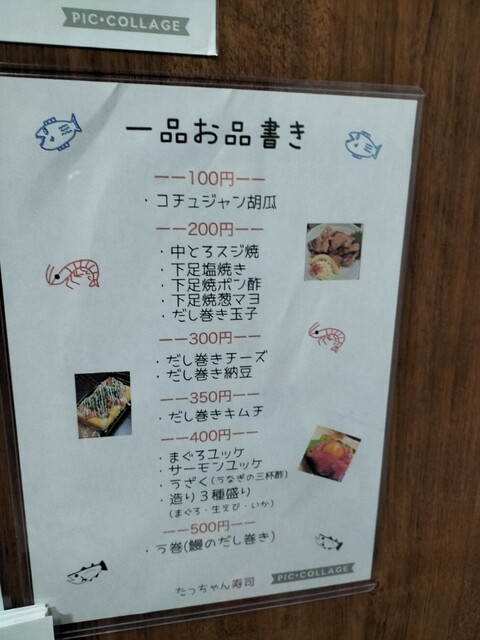 PIC•COLLAGE
一品お品書き
ーー100円ーー
・コチュジャン胡瓜
ーー200円ーー
・中とろスジ焼
・下足塩焼き
・下足焼ポン酢
・下足焼葱マヨ
・だし巻き玉子
ーー300円ーー
・だし巻きチーズ
・だし巻き納豆
ーー350円ーー
・だし巻きキムチ
ーー400円ーー
・まぐろユッケ
・サーモンユッケ
・うざく(うなぎの三杯酢)
・造り3種盛り
(まぐろ・生えび・いか)
ーー500円ーー
・う巻(鰻のだし巻き)
たっちゃん寿司
PIC•COLLAGE